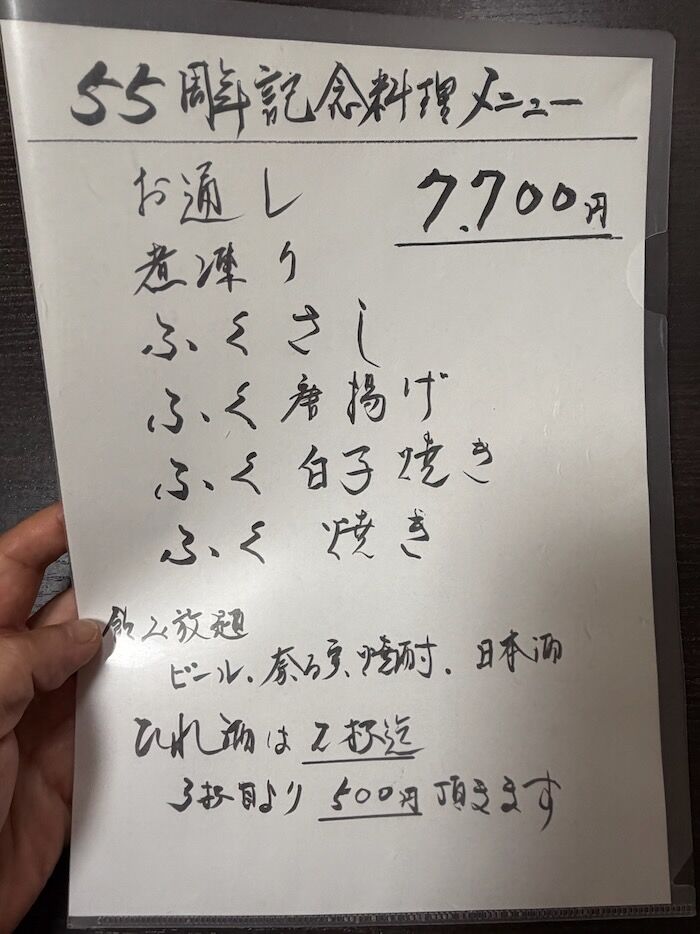 55周年記念料理メニュー
お通し 7,700円
煮凍り
ふくさし
ふく唐揚げ
ふく白子焼き
ふく焼き
飲み放題
ビール、 焼酎、日本酒
ひれ酒は2杯迄
3杯目より 500円 頂きます